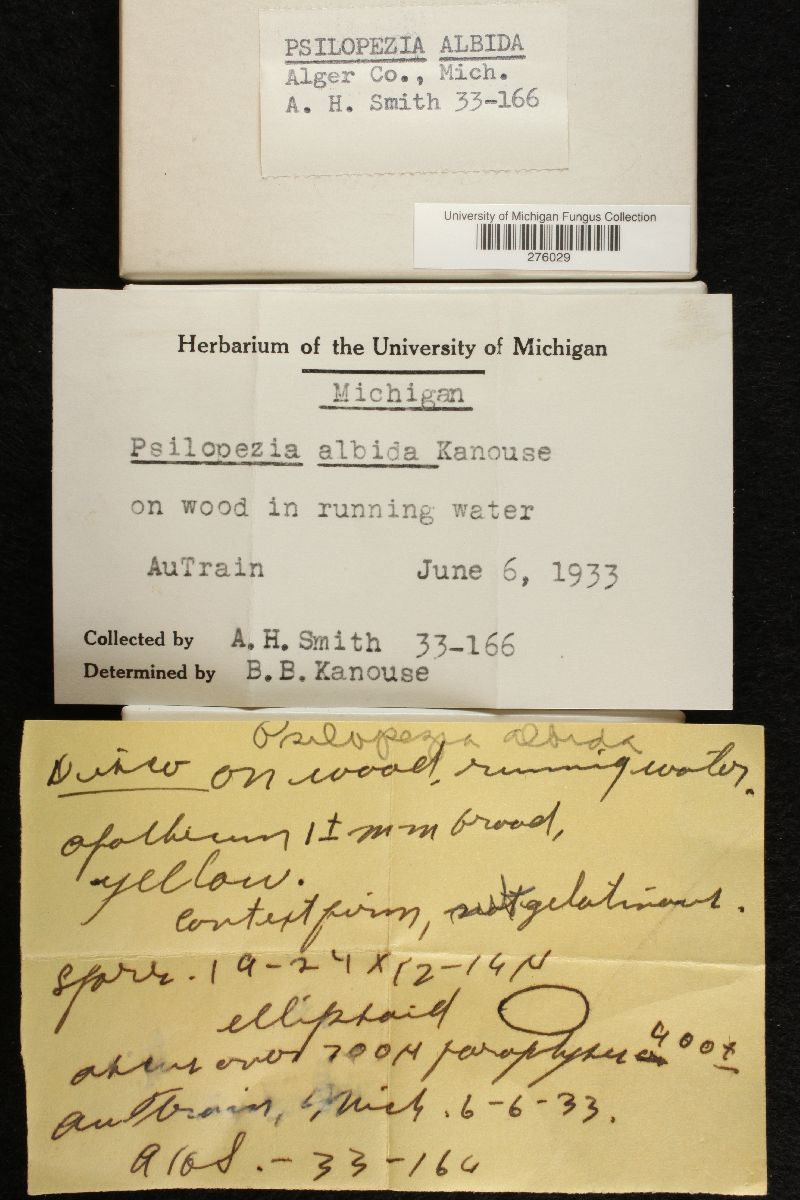 PSILOPEZIA ALBIDA
Alger Co., Mich.
A. H. Smith 33-166
University of Michigan Fungus Collection
276029
Herbarium of the University of Michigan
Michigan
Psilopezia albida Kanouse
on wood in running water
AuTrain June 6, 1933
Collected by A.H. Smith 33-166
Determined by B.B. Kanouse
Psilopezia albida
Disco on wood, running water.
apothecium 1± mm broad,
yellow.
context firm, gelatinous.
spores. 19-24 x 12-14 µ
ellipsoid
over 700µ paraphyses 400±
AuTrain, Mich. 6-6-33.
AHS. - 33-166